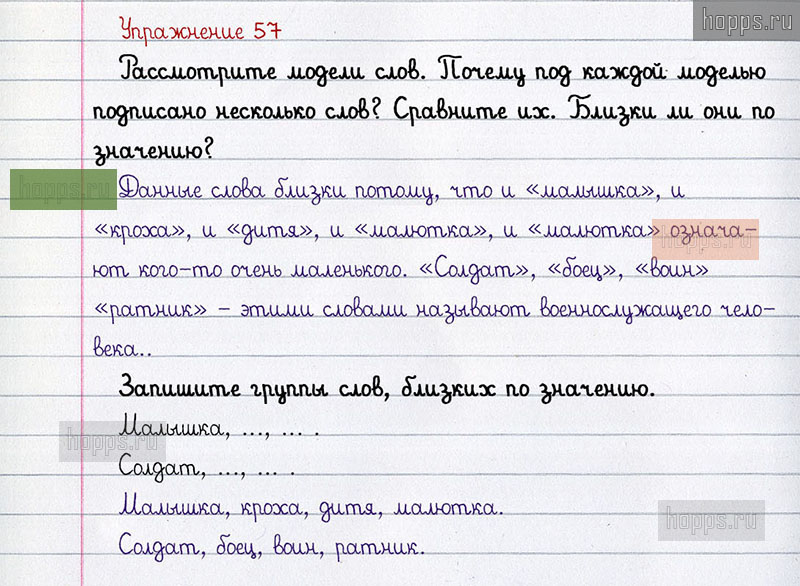 hopps.ru
Упражнение 57
Рассмотрите модели слов. Почему под каждой моделью
подписано несколько слов? Сравните их. Близки ли они по
значению?
hopps.ru
Данные слова близки потому, что и «малышка», и
«кроха», и «дитя», и «малютка», и «малютка» означа-
hopps.ru
ют кого-то очень маленького. «Солдат», «боец», «воин»
«ратник» - этими словами называют военнослужащего чело-
века..
Запишите группы слов, близких по значению.
Малышка, ..., ... .
hopps.ru
Солдат, ..., ... .
Малышка, кроха, дитя, малютка.
hopps.ru
Солдат, боец, воин, ратник.